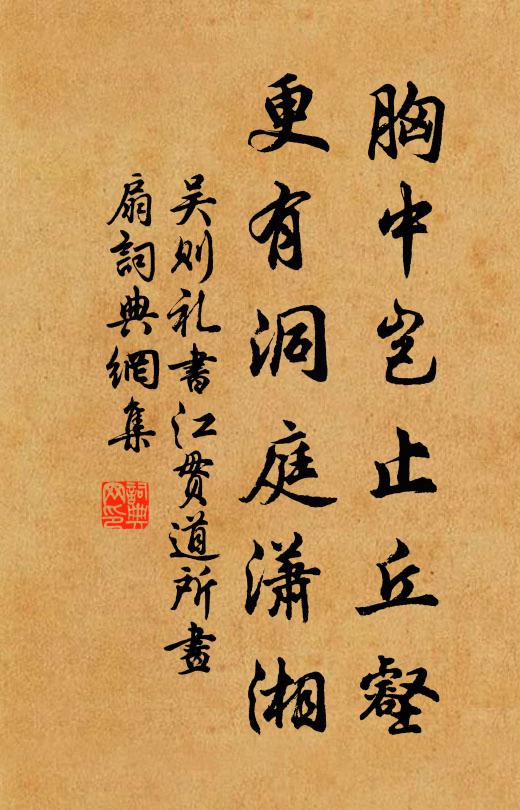 胸中岂止丘壑
更有洞庭潇湘
吴则礼书江贯道所画
扇詞典網集
詞典
网印